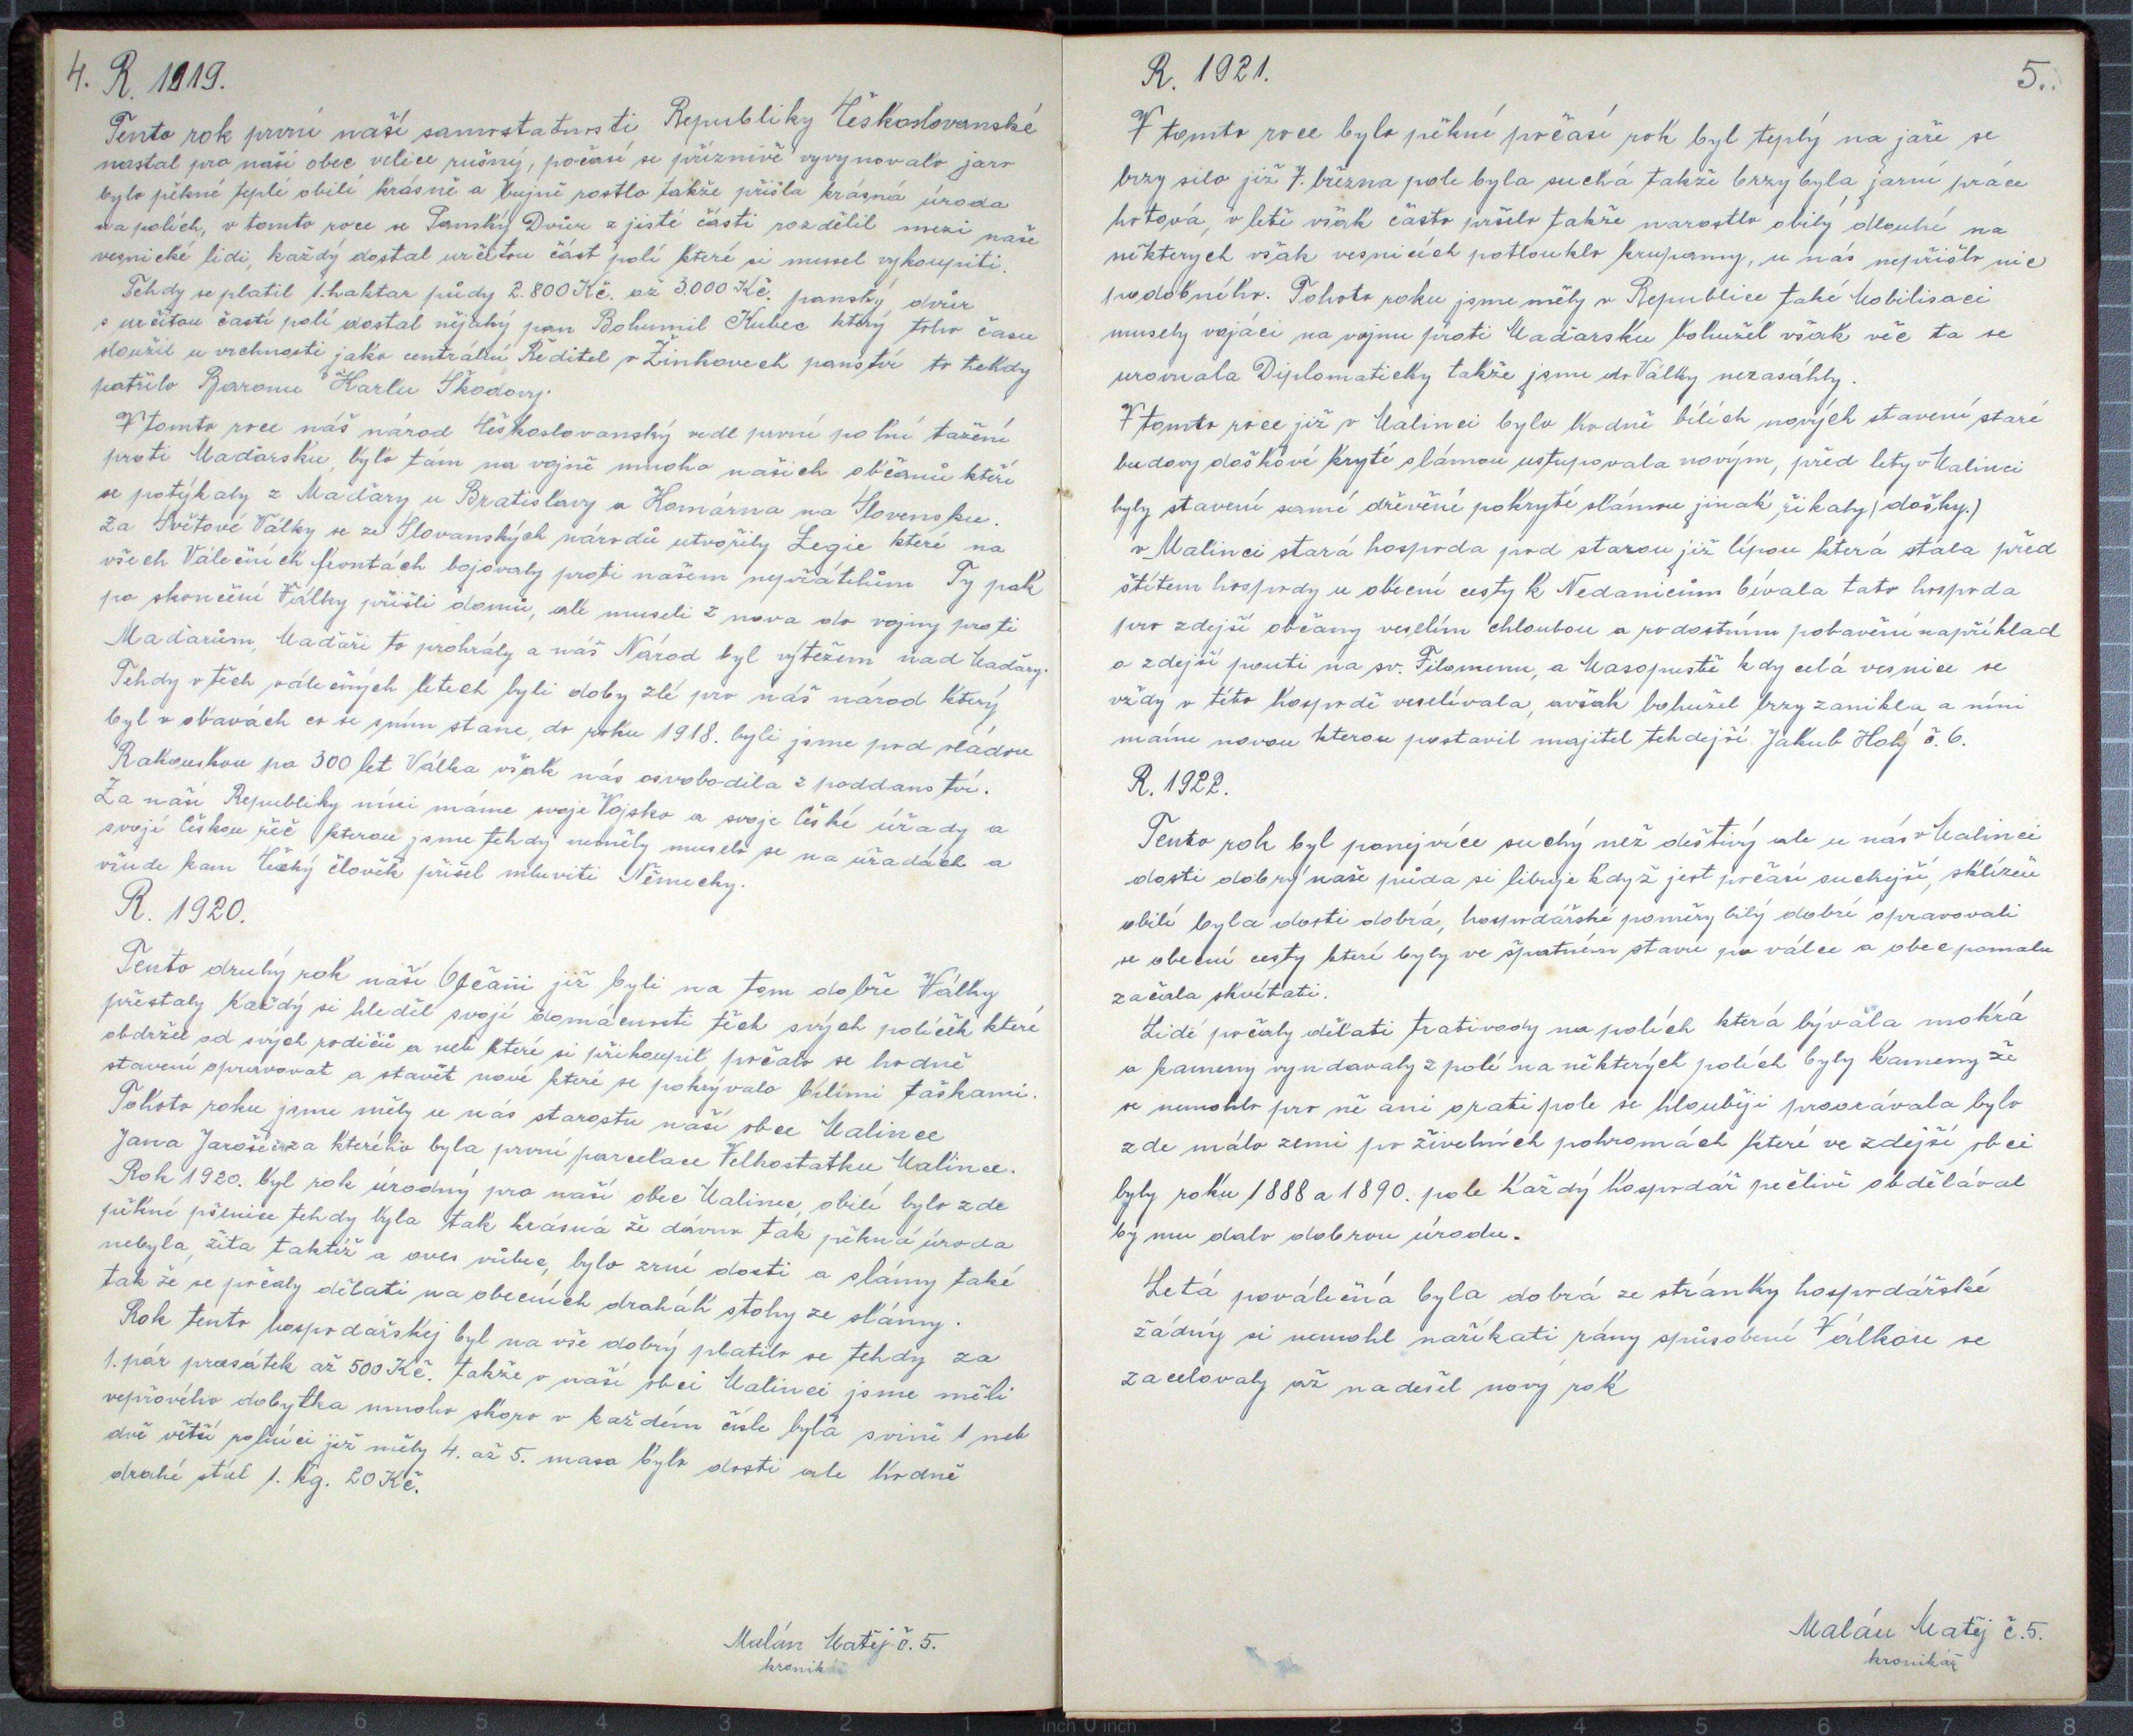 4. R. 1919.
Tento rok první naší samostatnosti Republiky Českoslovanské
nastal pro naší obec velice rušný, počasí se příznivě vyvynovalo jaro
bylo pěkné teplé obilí krásně a bujně rostlo takže přišla krásná úroda
na polích, v tomto roce se Panský Dvůr z jisté části rozdělil mezi naše
vesnické lidi, každý dostal určitou část polí které si musel vykoupiti.
Tehdy se platil 1. haktar půdy 2.800 Kč. až 3.000 Kč. panský dvůr
s určitou částí polí dostal nějaký pan Bohumil Kubec který toho času
sloužil u vrchnosti jako centrální Ředitel v Žinkovech panství to tehdy
patřilo Baronu Karlu Škodovy.
V tomto roce náš národ Českoslovanský vedl první polní tažení
proti Maďarsku, bylo tám na vojně mnoho našich občanů kteří
se potýkaly z Maďary u Bratislavy a Komárna na Slovensku.
Za Světové Války se ze Slovanských národů utvořily Legie které na
všech Válečních frontách bojovaly proti našem nepřátelům Ty pak
po skončení Války přišli domů, ale museli z nova do vojny proti
Maďarům, Maďaři to prohrály a náš Národ byl výtězem nad Maďary.
Tehdy v těch válečných letech byli doby zlé pro náš národ který
byl v obavách co se sním stane, do roku 1918. byli jsme pod vládou
Rakouskou po 300 let Válka však nás osvobodila z poddanství.
Za naší Republiky níní máme svoje Vojsko a svoje České úřady a
svojí Českou řěč kterou jsme tehdy neměly muselo se na úřadách a
všude kam Český člověk přišel mluviti Německy.
R. 1920.
Tento druhý rok naší Občani již byli na tom dobře Války
přestaly každý si hleděl svojí domácnosti těch svých políček které
obdržel od svých rodičů a neb které si přikoupil, počalo se hodně
stavení opravovat a stavět nové které se pokrývalo bílími taškami.
Tohoto roku jsme měly u nás starostu naší obce Malince
Jana Jaroše za kterého byla první parcelace Velkostatku Malince.
Rok 1920. byl rok úrodný pro naší obec Malinec, obilí bylo zde
pěkné pšenice tehdy byla tak krásná že dávno tak pěkná úroda
nebyla, žita taktéž a oves vůbec, bylo zrní dosti a slámy také
tak že se počaly dělati na obecních drahák stohy ze slámy.
Rok tento hospodařskéj byl na vše dobrý platilo se tehdy za
1. pár prasátek až 500 Kč. takže v naší obci Malinci jsme měli
vepřového dobytka mnoho skoro v každém čísle byla svině 1 neb
dvě větší rolníci již měly 4. až 5. masa bylo dosti ale hodně
drahé stál 1. kg. 20 Kč.
Malán Matěj č. 5.
kronikář
R. 1921.
5.
V tomto roce bylo pěkné počasí rok byl teplý na jaře se
brzy silo již 7. března pole byla suchá takže brzy byla jarní práce
hotová, v letě však často pršelo takže narostlo obilý dlouhé na
některych však vesnicích potlouklo krupamy, u nás nepřišlo nic
podobného. Tohoto roku jsme měly v Republice také Mobilisaci
musely vojáci na vojnu proti Maďarsku bohužel však věc ta se
urovnala Diplomaticky takže jsme do Války nezasáhly.
V tomto roce již v Malinci bylo hodně bílích nových stavení staré
budovy doškové kryté slámou ustupovala novým, před lety v Malinci
byly stavení samé dřevěné pokryté slámou jinak řikaly (došky.)
v Malinci stará hospoda pod starou již lípou která stála před
štítem hospody u obecní cesty k Nedanicům bívala tato hospoda
pro zdejší občany veselím chloubou a rodostním pobavění například
o zdejší pouti na sv. Filomenu, a Masopustě kdy celá vesnice se
vždy v této hospodě veselívala, avšak bohužel brzy zanikla, a níní
máme novou kterou postavil majitel tehdejší Jakub Holý č. 6.
R. 1922.
Tento rok byl ponejvíce suchý než deštivý ale u nás v Malinci
dosti dobrý naše půda si libuje když jest počasí suchejší, sklízeň
obilí byla dosti dobrá, hospodářské poměry bilý dobré opravovali
se obecní cesty které byly ve špatném stavu po válce a obec pomalu
začala skvétati.
Lidé počaly dělati trativody na polích která bývala mokrá
a kameny vyndavaly z polí na některých polích byly kameny že
se nemohlo pro ně ani orati pole se hlouběji proorávala bylo
zde málo zemi po živelních pohromách které ve zdejší obci
byly roku 1888 a 1890. pole každý hospodář pečlivě obdělával
by mu dalo dobrou úrodu.
Letá poválečná byla dobrá ze stránky hospodářské
žádný si nemohl naříkati rány spůsobené Válkou se
zacelovaly až nadešel nový rok
Malán Matěj č. 5.
kronikář
8 7 6 5 4 3 2 1 inch 0 inch 1 2 3 4 5 6 7 8